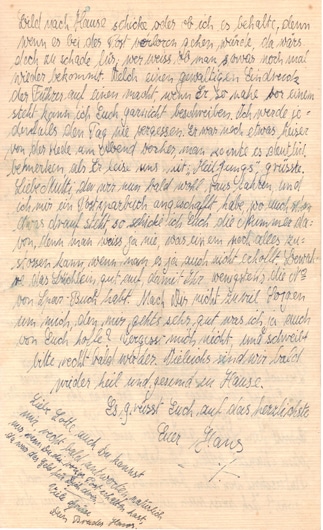 Bild nach Hause schicke oder ob ich es behalte, denn
wenn es bei der Post verloren gehen würde, da wärs
doch zu schade, wer weiss ob man sowas noch mal
wieder bekommt. Welch einen gewaltigen Eindruck
der Führer auf einen macht, wenn Er so nahe vor einem
steht kann ich Euch garnicht beschreiben. Ich werde je-
denfalls den Tag nie vergessen. Er war noch etwas heiser
von der Rede am Abend vorher, man konnte es deutlich
bemerken als Er leise uns mit, Heil Jungens! grüsste.
Liebe da wir nun bald wohl und
ich mir ein angeschafft habe wo auch schon
etwas drauf steht, so schicke ich Euch die Nummer da-
von, denn man weiss ja nie was einem noch alles zu-
stossen kann wenn man es ja auch nicht erhofft. Bewah-
rt das gut auf damit Ihr wenigstens die №
von Buch habt. Nach mir nicht zuviel Sorgen
um mich, denn mir gehts sehr gut was ich ja auch
von Euch hoffe? Vergesst mich nicht, und schreibt
bitte recht bald wieder. sind wir bald
wieder heil und gesund zu Hause.
Es grüsst Euch auf das herzlichste
Euer Hans
Liebe Lotte auch Du kannst
mir recht bald antworten, natürlich
nur wenn Du ein wenig Zeit hast
Viele Grüsse
Dein Hans!